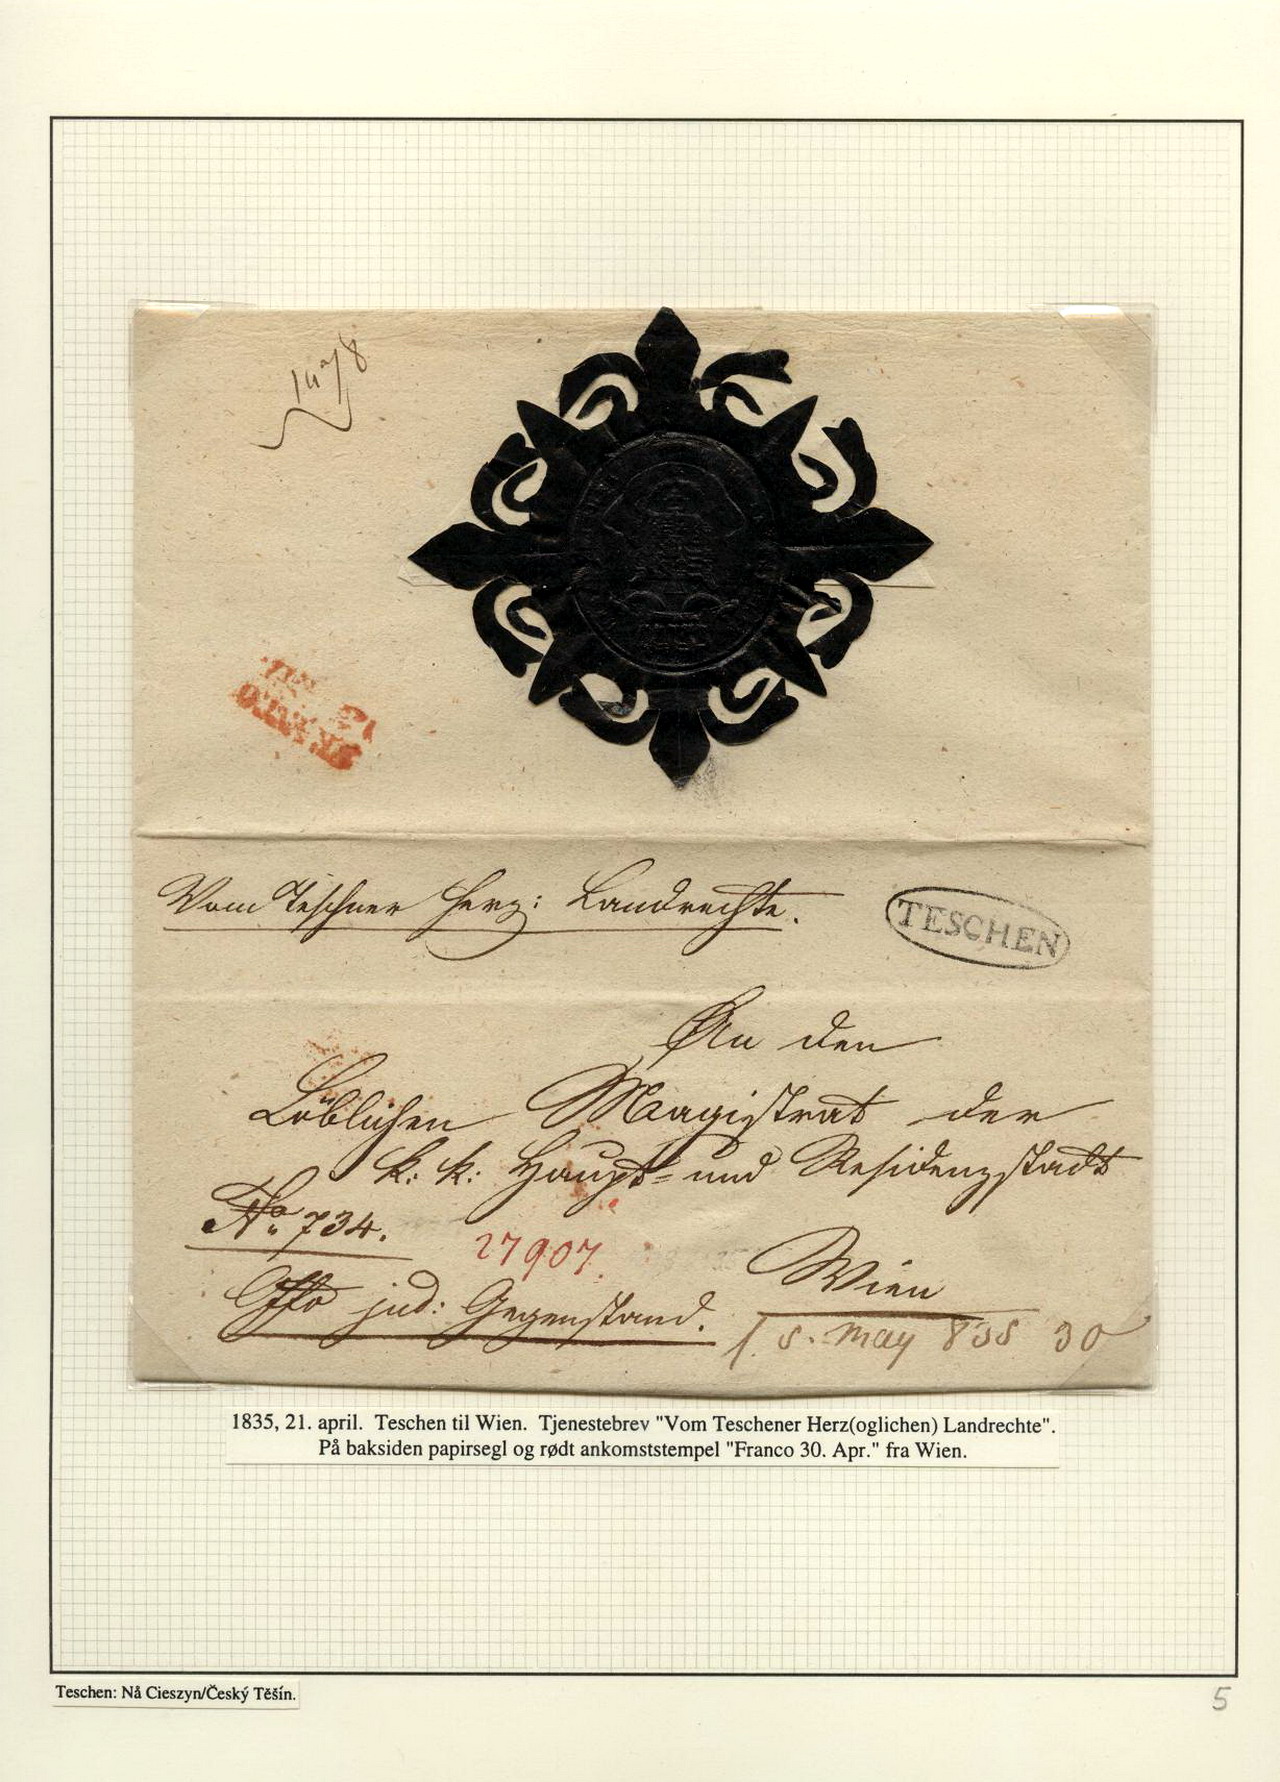 Vom Teschner Herz: Landrechte.
TESCHEN
An den
Löblichen Magistrat der
k: k: Haupt= und Residenzstadt
No 734.
27907.
Wien
Offo jud: Gegenstand.
5. May 835 30
1835, 21. april. Teschen til Wien. Tjenestebrev "Vom Teschener Herz(oglichen) Landrechte".
På baksiden papirsegl og rødt ankomststempel "Franco 30. Apr." fra Wien.
Teschen: Nå Cieszyn/Český Těšín.
5